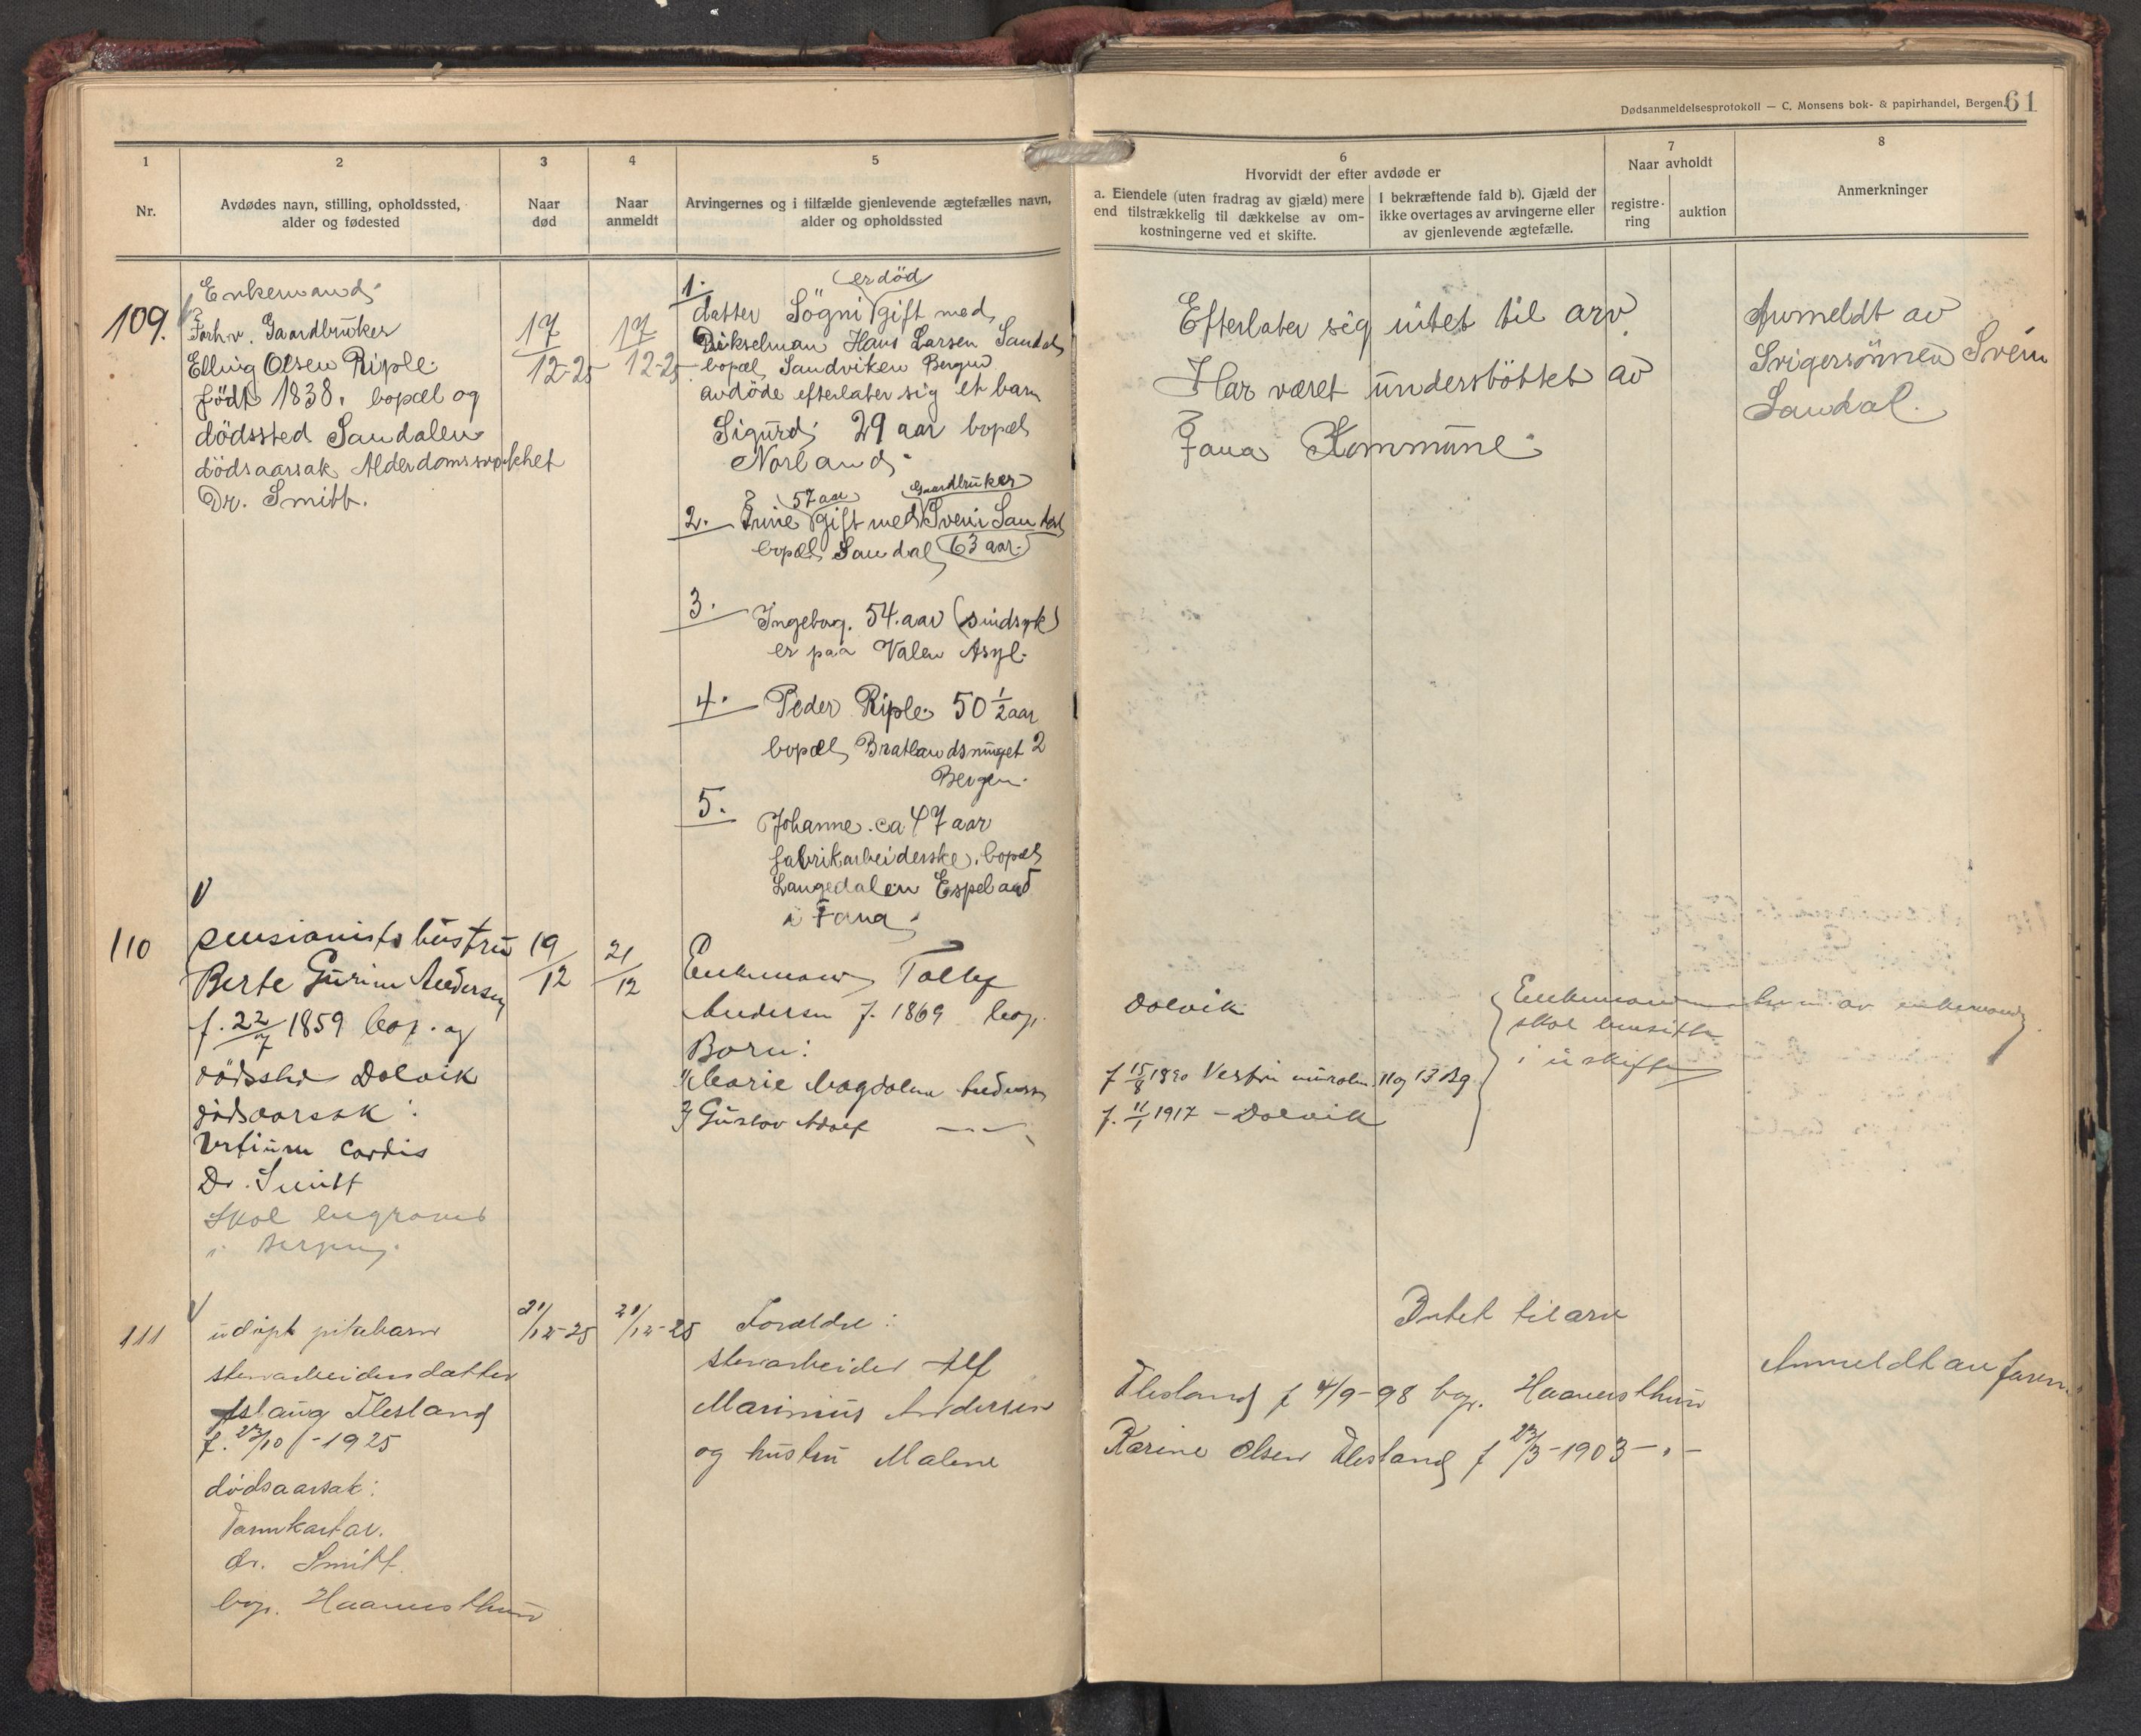 Dødsanmeldelsesprotokoll — C. Monsens bok- & papirhandel, Bergen.
61
1
Nr.
2
Avdødes navn, stilling, opholdssted,
alder og fødested
3
Naar
død
4
Naar
anmeldt
5
Arvingernes og i tilfælde gjenlevende ægtefælles navn,
alder og opholdssted
6
Hvorvidt der efter avdøde er
a. Eiendele (uten fradrag av gjæld) mere
end tilstrækkelig til dækkelse av om-
kostningerne ved et skifte.
I bekræftende fald b). Gjæld der
ikke overtages av arvingerne eller
av gjenlevende ægtefælle.
7
Naar avholdt
registre-
ring
auktion
8
Anmerkninger
109.
Enkemand
Forhv. Gaardbruker
Elling Olsen Riple
født 1838. bopæl og
dödssted Sandalen
dödsaarsak Alderdomssvakhet
Dr. Smitt.
17
12-25
17
12-25
1.
er död
datter Sögni gift med
Hans Larsen Sandal
bopæl Sandviken Bergen
avdöde efterlater sig et barn
Sigurd 29 aar bopæl
Norland
57 aar
Gaardbruker
2. gift med Svein Sandal
bopæl Sandal 63 aar.
3. Ingeborg. 54. aar (sindsyk)
er paa Valen Asyl.
4. Peder Riple 50 1/2 aar
bopæl Bratlandsmuget 2
Bergen.
5.
Johanne. ca 47 aar
fabrikarbeiderske. bopæl
Langedalen Espeland
i Fana
Efterlater sig intet til arv
Har været understöttet av
Fana Kommune.
Anmeldt av
Svigersönnen Svein
Sandal.
110
pensionists hustru
Berte Gurine Andersen
f. 22/7 1859 bop. og
dödssted Dolvik
dödsaarsak:
Vitium Cordis
Dr. Smitt
Skal begraves
i Bergen.
19
12
21
12
Enkemand Tollef
Andersen f. 1869 bop.
Born:
1) Marie Magdalena Andersen
2) Gustav Adolf — " —
Dolvik
f 15/8 1890 Vestre muralm. 11 og 13 Bg
f. 11/1 1917 - Dolvik
Enkemanden
skal bensitte
i uskifte
av enkemand
111
udöpt pikebarn
stenarbeiders datter
Aslaug Flesland
f. 23/10 - 1925
dödsaarsak:
Tarmkatar.
dr. Smitt.
bop. Haavardstun
21/12-25
21/12-25
Forældre:
stenarbeider Alf
Marinius Andersen
og hustru Malene
Intet til arv
Flesland f 4/9-98 bop. Haavardstun
Karine Olsen Flesland f 23/3-1903 - " -
Anmeldt av faren